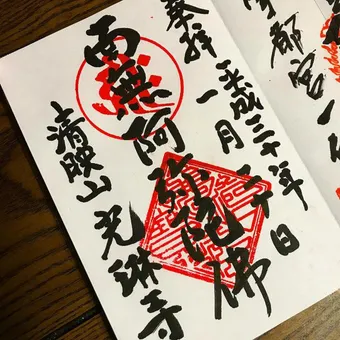 都宮一
奉拝
平成三十年
一月二十日
南無阿弥陀佛
清映山 光琳寺